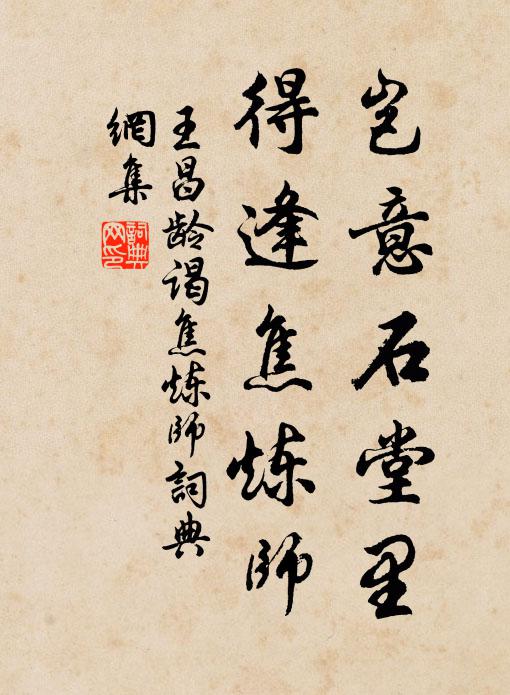 岂意石堂里
得逢焦炼师
王昌龄谒焦炼师詞典
網集
詞典網印